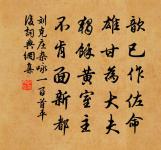 歆已作佐命
雄甘為大夫
獨餘黃室主
不肯面新都
劉克庄杂咏一百首平
后詞典網集